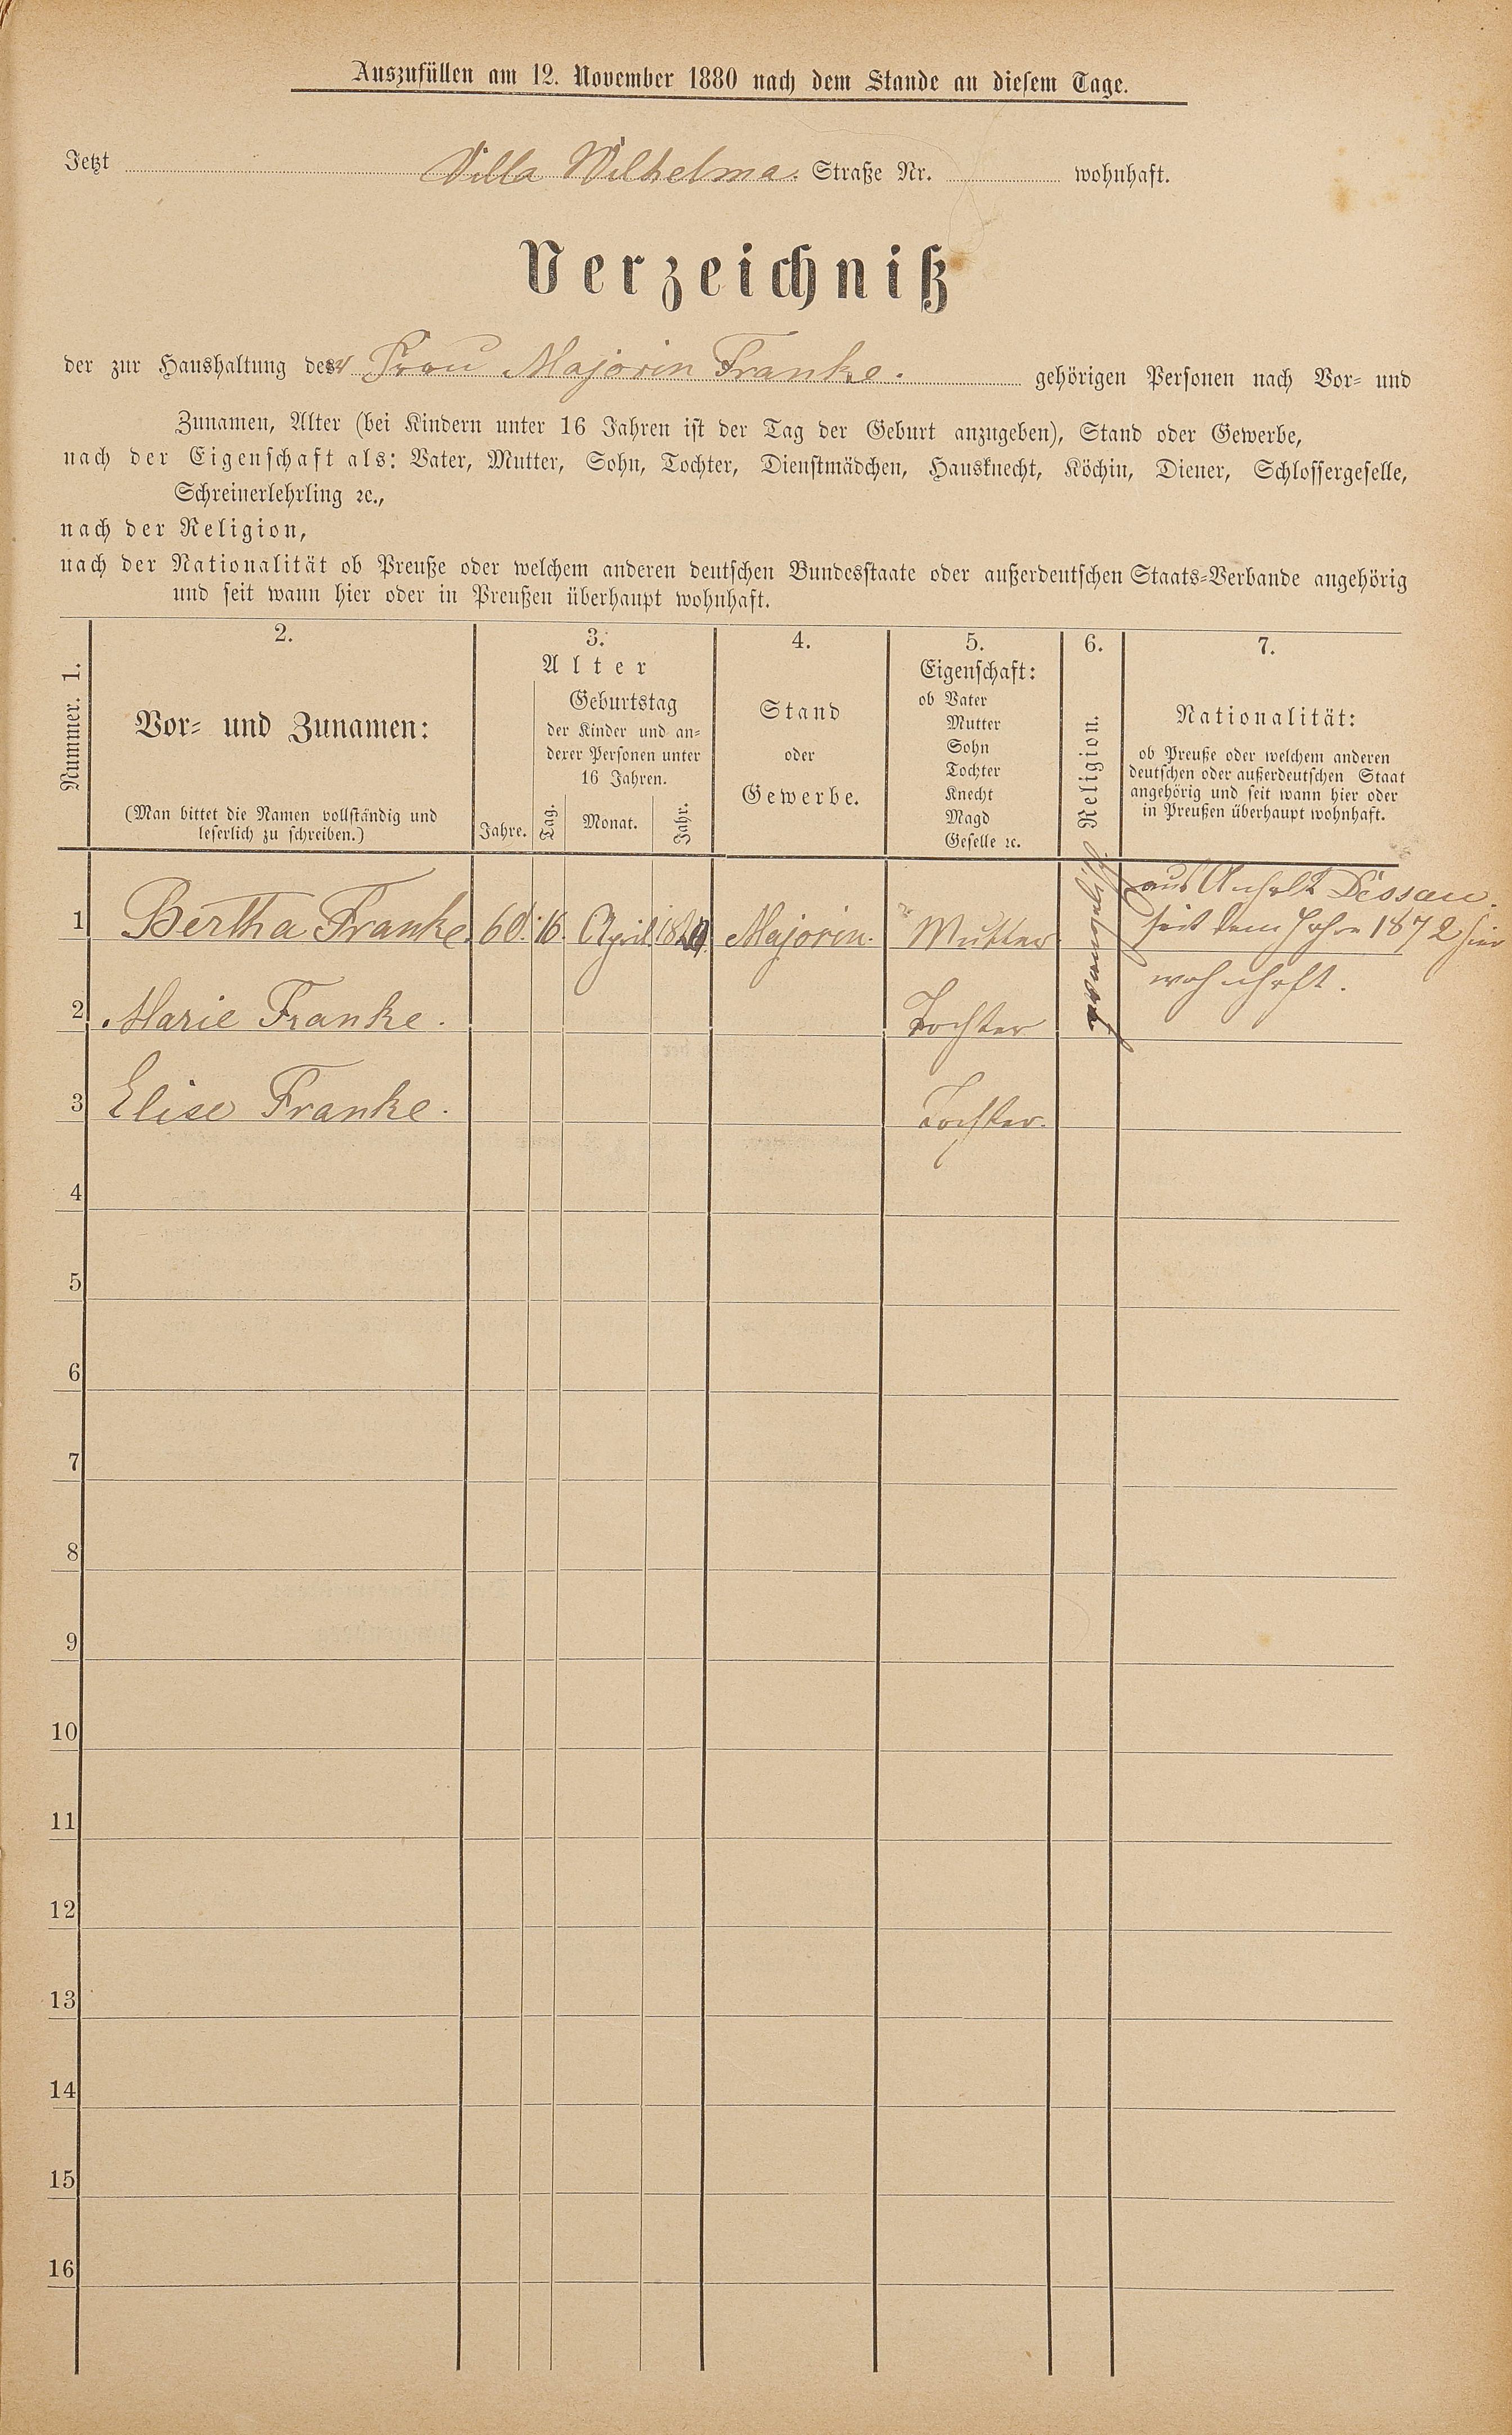 Auszufüllen am 12. November 1880 nach dem Stande an diesem Tage.
Jetzt Villa Wilhelma. Straße Nr. wohnhaft.
Verzeichniß
der zur Haushaltung der Frau Majorin Franke. gehörigen Personen nach Vor- und
Zunamen, Alter (bei Kindern unter 16 Jahren ist der Tag der Geburt anzugeben), Stand oder Gewerbe,
nach der Eigenschaft als: Vater, Mutter, Sohn, Tochter, Dienstmädchen, Hausknecht, Köchin, Diener, Schlossergeselle,
Schreinerlehrling ꝛc.,
nach der Religion,
nach der Nationalität ob Preuße oder welchem anderen deutschen Bundesstaate oder außerdeutschen Staats-Verbande angehörig
und seit wann hier oder in Preußen überhaupt wohnhaft.
Nummer. 1.
2.
Vor- und Zunamen:
(Man bittet die Namen vollständig und
leserlich zu schreiben.)
3.
Alter
Jahre.
Geburtstag
der Kinder und an-
derer Personen unter
16 Jahren.
Tag. Monat. Jahr.
4.
Stand
oder
Gewerbe.
5.
Eigenschaft:
ob Vater
Mutter
Sohn
Tochter
Knecht
Magd
Geselle ꝛc.
6.
Religion.
7.
Nationalität:
ob Preuße oder welchem anderen
deutschen oder außerdeutschen Staat
angehörig und seit wann hier oder
in Preußen überhaupt wohnhaft.
1 Bertha Franke. 60. 16. April Majorin. Mutter evangelisch aus Anhalt Dessau.
seit dem Jahre 1872 hier
wohnhaft.
2 Marie Franke. Tochter
3 Elise Franke. Tochter.
4
5
6
7
8
9
10
11
12
13
14
15
16